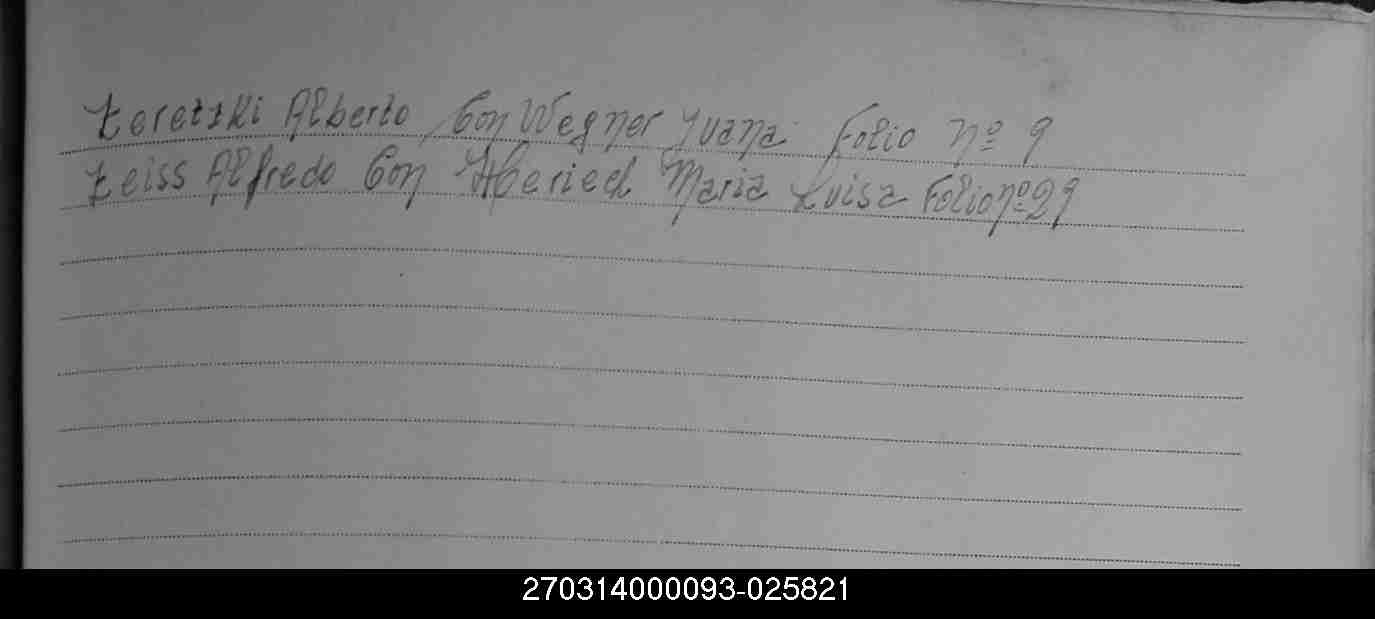 Zeretzki Alberto Con Wegner Juana Folio nº 9
Zeiss Alfredo Con Maria Luisa Folio nº 29
270314000093-025821